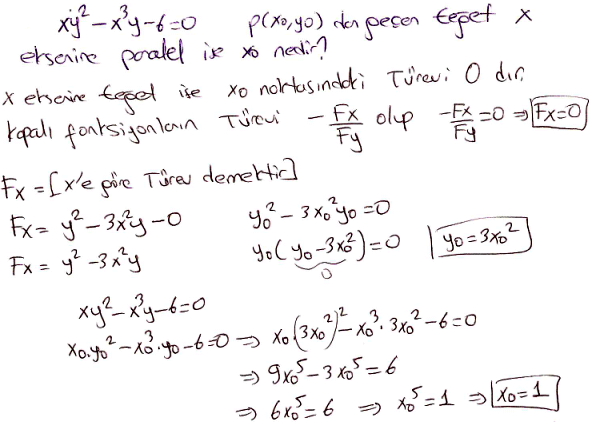 xy² - x³y - 6 = 0 P(x₀,y₀) dan geçen teğet x
eksenine paralel ise x₀ nedir?
x eksenine teğet ise x₀ noktasındaki Türevi 0 dır.
Kapalı fonksiyonların Türevi -Fx/Fy olup -Fx/Fy = 0 ⇒ Fx=0
Fx = [x'e göre Türev demektir]
Fx = y² - 3x²y - 0 y₀² - 3x₀²y₀ = 0
Fx = y² - 3x²y y₀(y₀ - 3x₀²) = 0 y₀ = 3x₀²
0
xy² - x³y - 6 = 0
x₀.y₀² - x₀³.y₀ - 6 = 0 ⇒ x₀.(3x₀²)² - x₀³.3x₀² - 6 = 0
⇒ 9x₀⁵ - 3x₀⁵ = 6
⇒ 6x₀⁵ = 6 ⇒ x₀⁵ = 1 ⇒ x₀ = 1